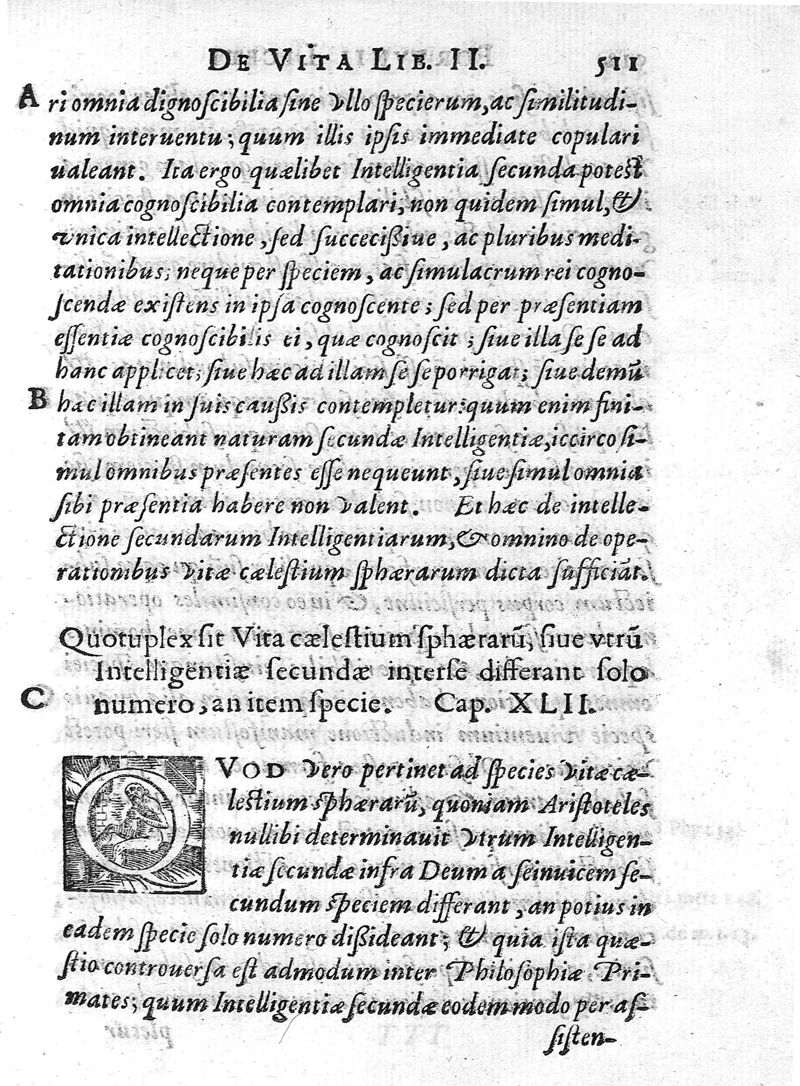 DE VITA LIB. II. 511
A ri omnia dignoſcibilia ſine vllo ſpecierum, ac ſimilitudi-
num interuentu; quum illis ipſis immediate copulari
ualeant. Ita ergo quælibet Intelligentia ſecunda poteſt
omnia cognoſcibilia contemplari, non quidem ſimul, &
vnica intellectione, ſed ſucceciſſiue, ac pluribus medi-
tationibus; neque per ſpeciem, ac ſimulacrum rei cogno-
ſcendæ exiſtens in ipſa cognoſcente; ſed per præſentiam
eſſentiæ cognoſcibilis ei, quæ cognoſcit; ſiue illa ſe ſe ad
hanc applicet; ſiue hæc ad illam ſe ſe porrigat; ſiue demũ
B hæc illam in ſuis cauſſis contempletur: quum enim fini-
tam obtineant naturam ſecundæ Intelligentiæ, iccirco ſi-
mul omnibus præſentes eſſe nequeunt, ſiue ſimul omnia
ſibi præſentia habere non valent. Et hæc de intelle-
ctione ſecundarum Intelligentiarum, & omnino de ope-
rationibus vitæ cæleſtium ſphærarum dicta ſufficiãt.
Quotuplex ſit Vita cæleſtium ſphærarũ, ſiue vtrũ
Intelligentiæ ſecundæ interſe differant ſolo
C numero, an item ſpecie. Cap. XLII.
QVOD vero pertinet ad ſpecies vitæ cæ-
leſtium ſphærarũ, quoniam Ariſtoteles
nullibi determinauit vtrum Intelligen-
tiæ ſecundæ infra Deum a ſeinuicem ſe-
cundum ſpeciem differant, an potius in
eadem ſpecie ſolo numero diſſideant; & quia iſta quæ-
ſtio controuerſa eſt admodum inter Philoſophiæ Pri-
mates; quum Intelligentiæ ſecundæ eodem modo per aſ-
ſiſten-